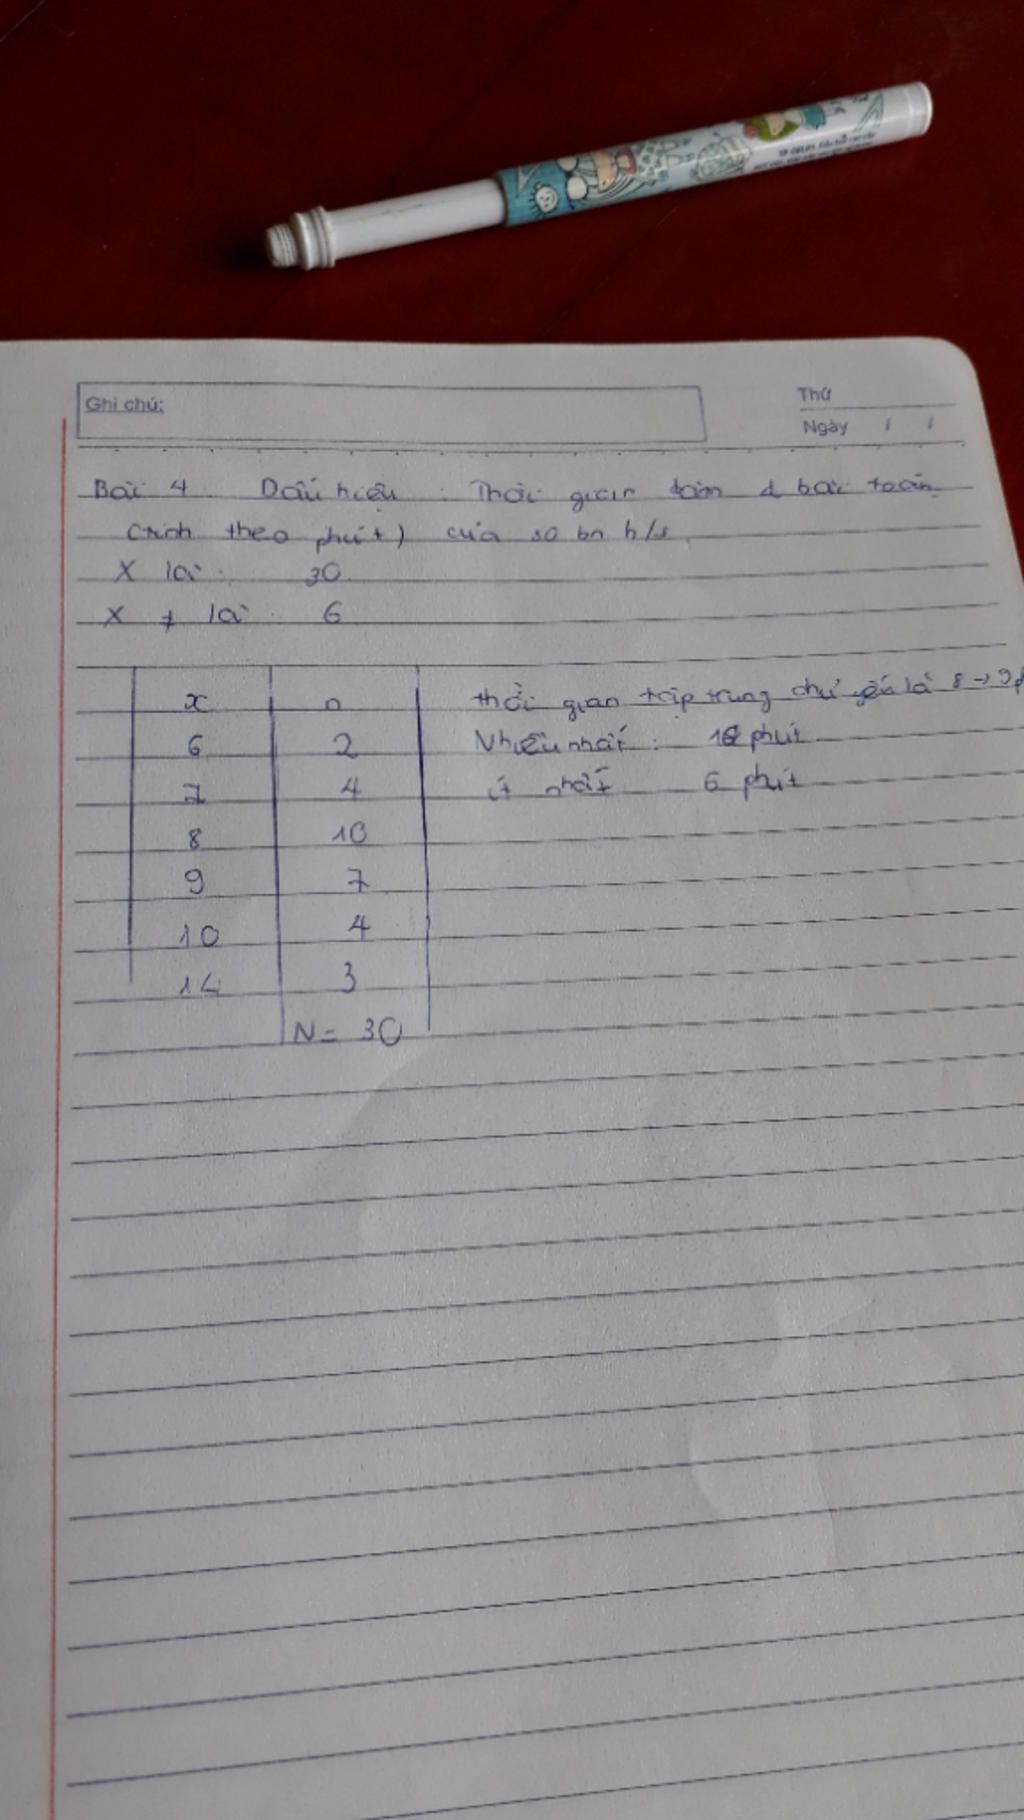 Ghi chú:
Thứ
Ngày / /
Bài 4 Dấu hiệu : Thời gian làm 1 bài toán
(tính theo phút) của 30 bn h/s.
X là: 30
X ≠ là: 6
x n
6 2
7 4
8 10
9 7
10 4
14 3
N = 30
thời gian tập trung chủ yếu là 8 → 9p
Nhiều nhất: phút
ít nhất 6 phút